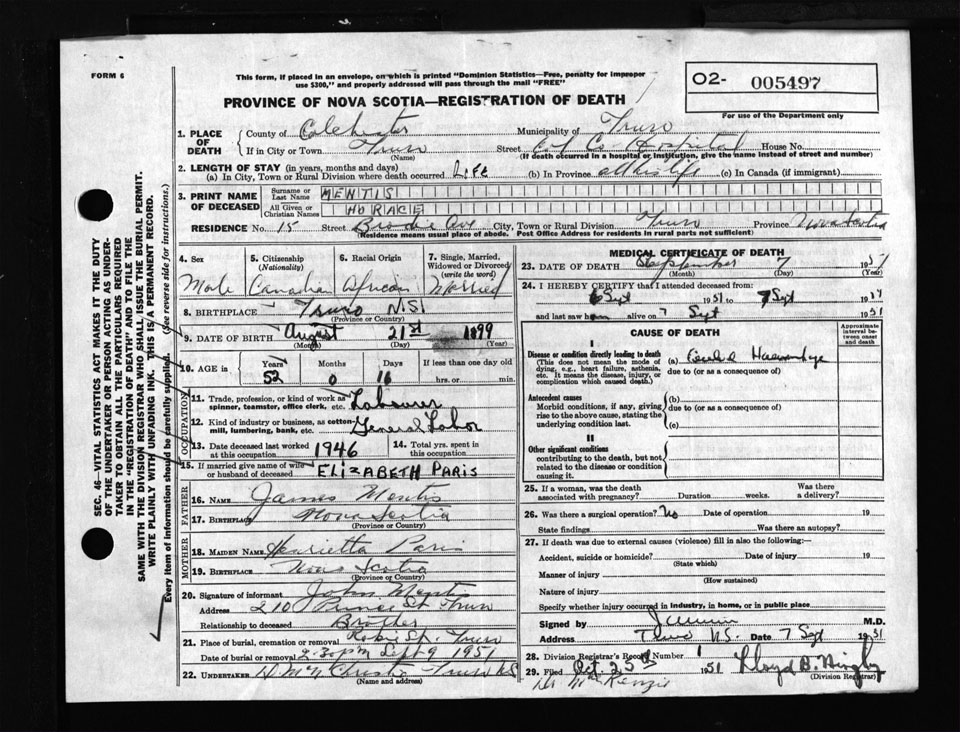 FORM 6
This form, if placed in an envelope, on which is printed "Dominion Statistics—Free, penalty for improper
use $300," and properly addressed will pass through the mail "FREE"
O2- 005497
For use of the Department only
PROVINCE OF NOVA SCOTIA—REGISTRATION OF DEATH
SEC. 46—VITAL STATISTICS ACT MAKES IT THE DUTY
OF THE UNDERTAKER OR PERSON ACTING AS UNDER-
TAKER TO OBTAIN ALL THE PARTICULARS REQUIRED
IN THE "REGISTRATION OF DEATH" AND TO FILE THE
SAME WITH THE DIVISION REGISTRAR WHO SHALL ISSUE THE BURIAL PERMIT.
WRITE PLAINLY WITH UNFADING INK. THIS IS A PERMANENT RECORD.
Every item of information should be carefully supplied. (See reverse side for instructions.)
1. PLACE OF DEATH
County of Colchester Municipality of Truro
If in City or Town Truro (Name) Street Col Co Hospital House No.
(If death occurred in a hospital or institution, give the name instead of street and number)
2. LENGTH OF STAY (in years, months and days)
(a) In City, Town or Rural Division where death occurred Life (b) In Province all his life (c) In Canada (if immigrant)
3. PRINT NAME OF DECEASED
Surname or Last Name MENTIS
All Given or Christian Names HORACE
RESIDENCE No. 15 Street Ave City, Town or Rural Division Truro Province Nova Scotia
(Residence means usual place of abode. Post Office Address for residents in rural parts not sufficient)
4. Sex Male
5. Citizenship (Nationality) Canadian
6. Racial Origin African
7. Single, Married, Widowed or Divorced (write the word) Married
8. BIRTHPLACE Truro NS
(Province or Country)
9. DATE OF BIRTH August 21st 1899
(Month) (Day) (Year)
10. AGE in Years 52 Months 0 Days 16 If less than one day old hrs. or min.
OCCUPATION
11. Trade, profession, or kind of work as spinner, teamster, office clerk, etc. Labourer
12. Kind of industry or business, as cotton-mill, lumbering, bank, etc. General Labor
13. Date deceased last worked at this occupation 1946
14. Total yrs. spent in this occupation
15. If married give name of wife or husband of deceased ELIZABETH PARIS
FATHER
16. NAME James Mentis
17. BIRTHPLACE Nova Scotia
(Province or Country)
MOTHER
18. MAIDEN NAME Henrietta Paris
19. BIRTHPLACE Nova Scotia
(Province or Country)
20. Signature of informant John Mentis
Address 210 Prince St Truro
Relationship to deceased Brother
21. Place of burial, cremation or removal Robie St. Truro
Date of burial or removal 2.30 pm Sept 9 1951
22. UNDERTAKER Truro NS
(Name and address)
MEDICAL CERTIFICATE OF DEATH
23. DATE OF DEATH September 7 1951
(Month) (Day) (Year)
24. I HEREBY CERTIFY that I attended deceased from:
6 Sept 1951 to 7 Sept 1951
and last saw him alive on 7 Sept 1951
CAUSE OF DEATH
Approximate interval between onset and death
I
Disease or condition directly leading to death
(This does not mean the mode of dying, e.g., heart failure, asthenia, etc. It means the disease, injury, or complication which caused death.)
(a)
due to (or as a consequence of)
Antecedent causes
Morbid conditions, if any, giving rise to the above cause, stating the underlying condition last.
(b)
due to (or as a consequence of)
(c)
II
Other significant conditions
contributing to the death, but not related to the disease or condition causing it.
25. If a woman, was the death associated with pregnancy? Duration weeks. Was there a delivery?
26. Was there a surgical operation? No Date of operation 19
State findings Was there an autopsy?
27. If death was due to external causes (violence) fill in also the following:—
Accident, suicide or homicide? Date of injury 19
(State which)
Manner of injury
(How sustained)
Nature of injury
Specify whether injury occurred in industry, in home, or in public place
Signed by M.D.
Address Truro N.S. Date 7 Sept 1951
28. Division Registrar's Record Number 1
29. Filed Oct. 25th 1951 Lloyd B.
(Division Registrar)